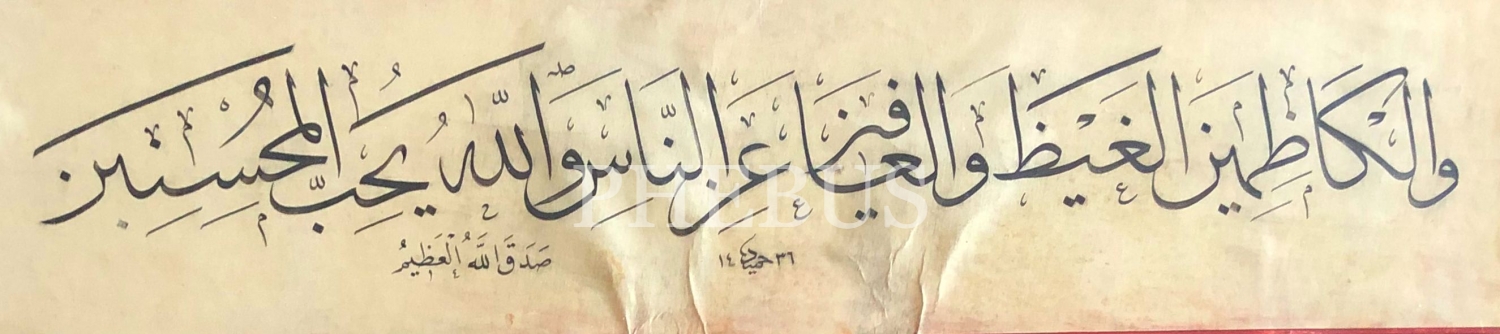 والكاظمين الغيظ والعافين عن الناس والله يحب المحسنين
صَدَقَ اللَّهُ الْعَظِيمُ
PHEBUS